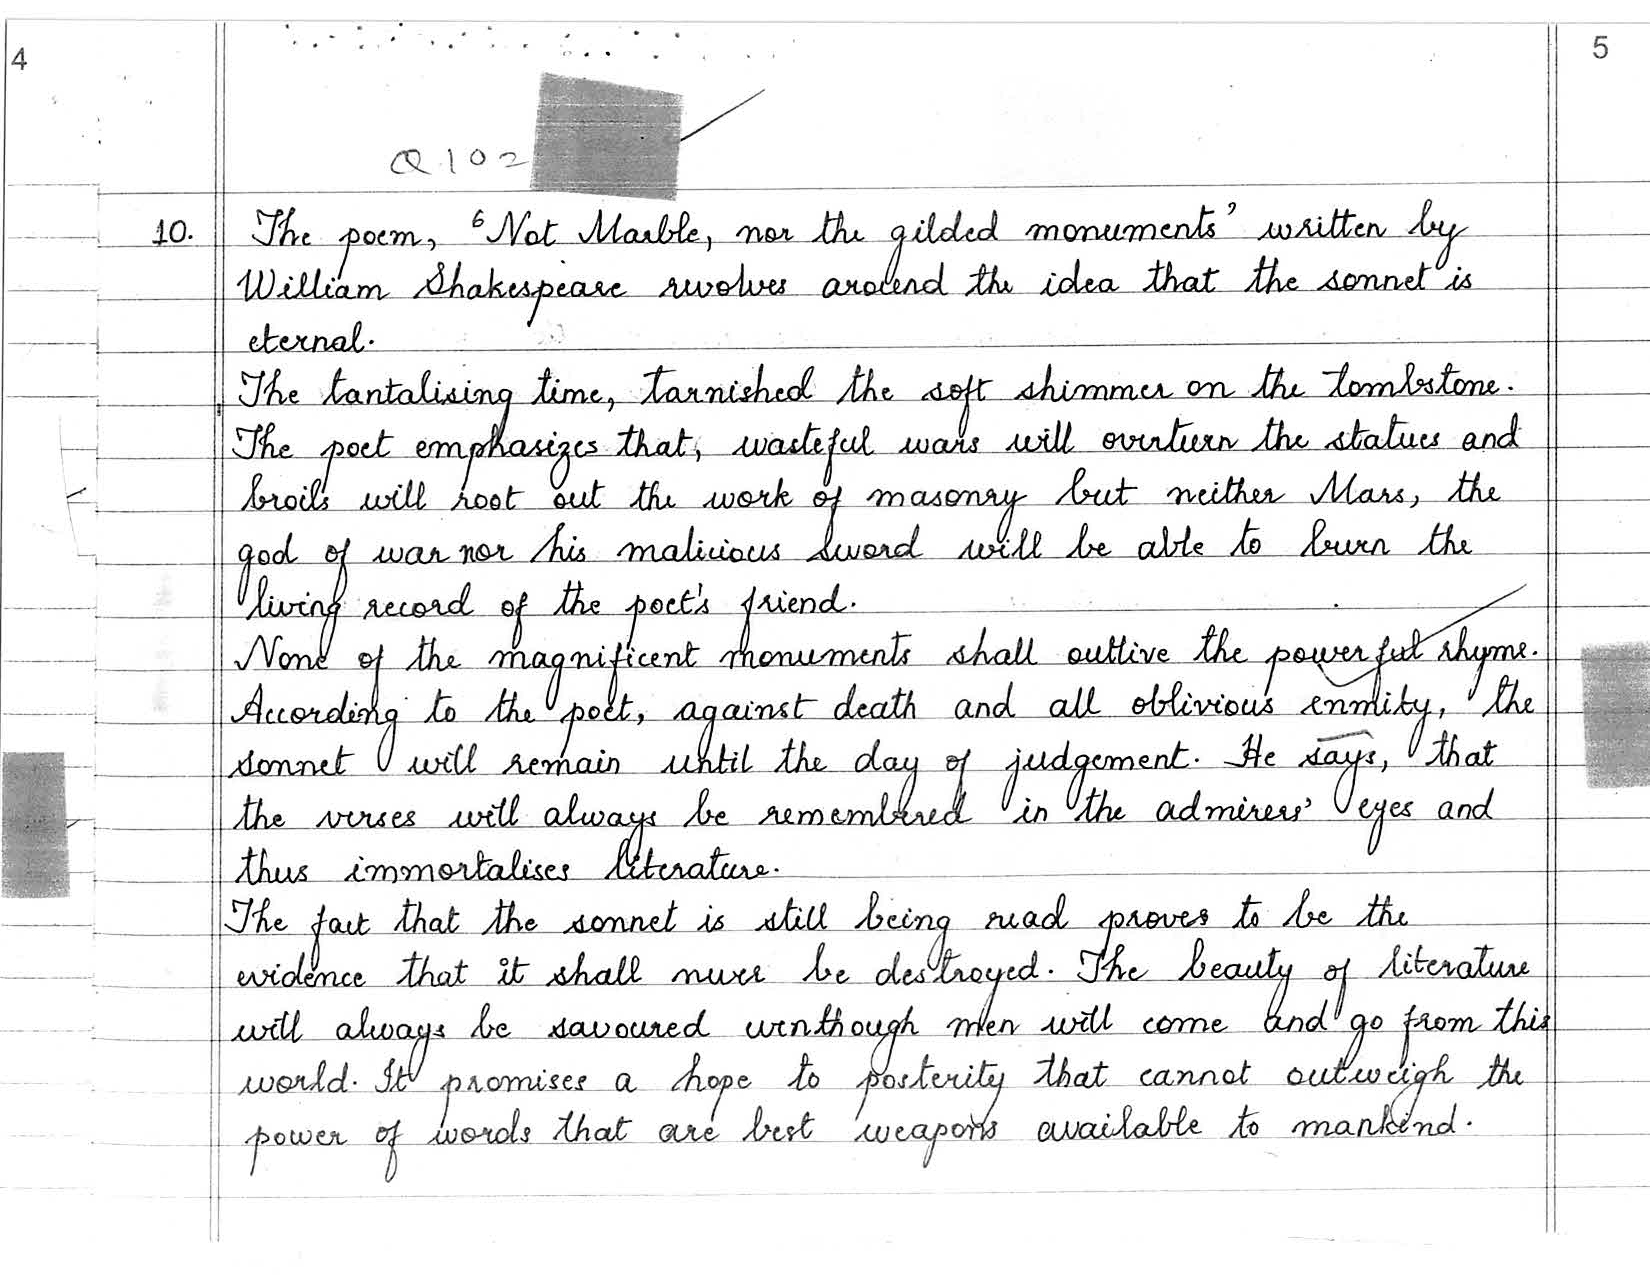 4
5
Q 10 =
10. The poem, ‘Not Marble, nor the gilded monuments’ written by
William Shakespeare revolves around the idea that the sonnet is
eternal.
The tantalising time, tarnished the soft shimmer on the tombstone.
The poet emphasizes that, wasteful wars will overturn the statues and
broils will root out the work of masonry but neither Mars, the
god of war nor his malicious sword will be able to burn the
living record of the poet's friend.
None of the magnificent monuments shall outlive the powerful rhyme.
According to the poet, against death and all oblivious enmity, the
sonnet will remain until the day of judgement. He says, that
the verses will always be remembered in the admirers' eyes and
thus immortalises literature.
The fact that the sonnet is still being read proves to be the
evidence that it shall never be destroyed. The beauty of literature
will always be savoured eventhough men will come and go from this
world. It promises a hope to posterity that cannot outweigh the
power of words that are best weapons available to mankind.